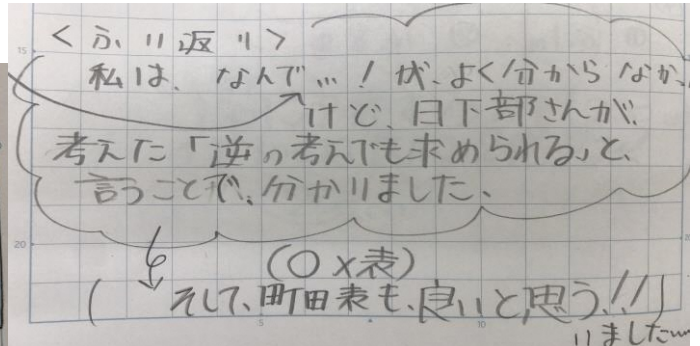 <ふり返り>
私は、なんで…!が、よく分からなか
けど、日下部さんが、
考えた「逆の考えでも求められる」と、
言うことで、分かりました、
(○×表)
(そして、町田表も、良いと思う!!)
いました
15
20
5
10